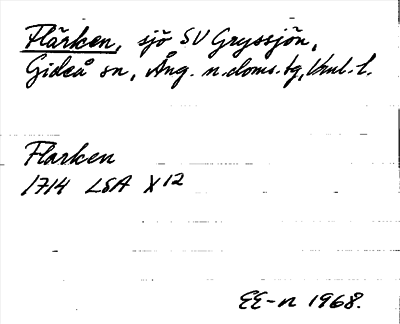 Flärken, sjö SV Gryssjön,
Gideå sn, Ång. n. doms. tg, Vnl. l.
Flarken
1714 LSA X 12
EE-n 1968.